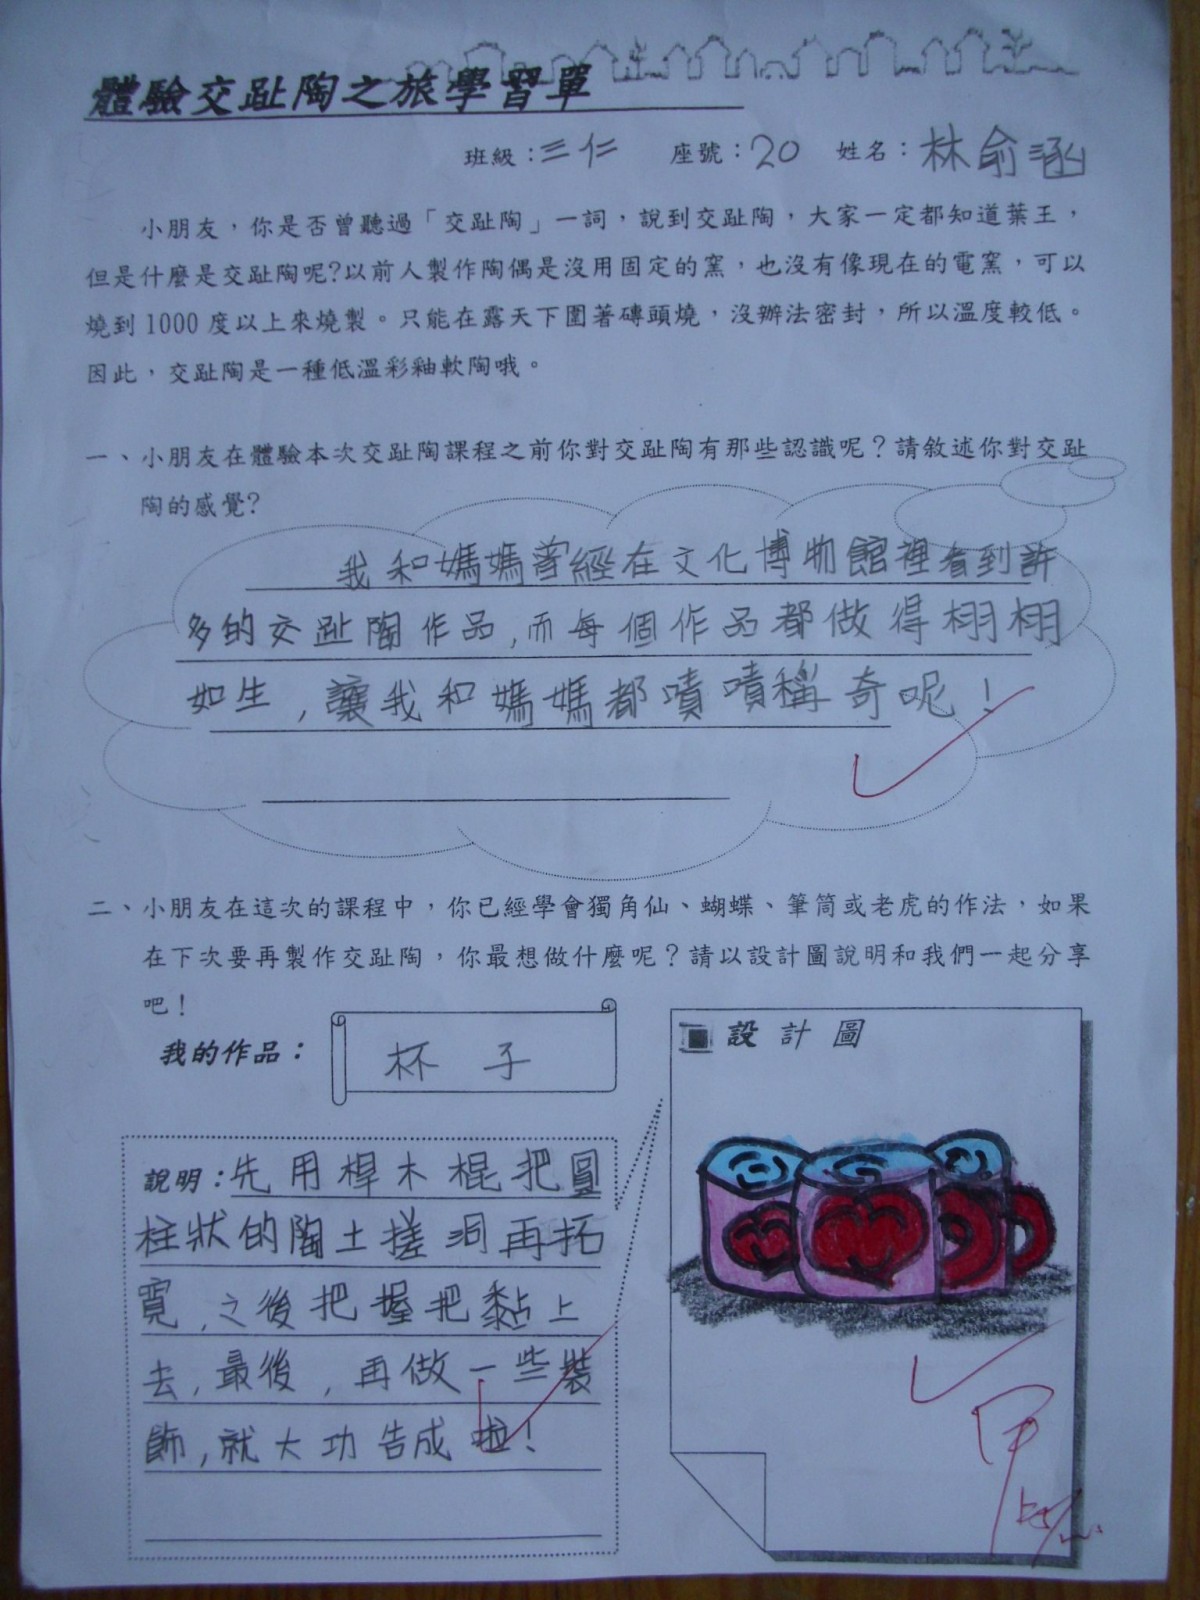 體驗交趾陶之旅學習單
班級：三仁 座號：20 姓名：林俞涵
小朋友，你是否曾聽過「交趾陶」一詞，說到交趾陶，大家一定都知道葉王，
但是什麼是交趾陶呢?以前人製作陶偶是沒用固定的窯，也沒有像現在的電窯，可以
燒到 1000 度以上來燒製。只能在露天下圍著磚頭燒，沒辦法密封，所以溫度較低。
因此，交趾陶是一種低溫彩釉軟陶哦。
一、小朋友在體驗本次交趾陶課程之前你對交趾陶有那些認識呢？請敘述你對交趾
陶的感覺?
我和媽媽曾經在文化博物館裡看到許
多的交趾陶作品,而每個作品都做得栩栩
如生,讓我和媽媽都嘖嘖稱奇呢!
二、小朋友在這次的課程中，你已經學會獨角仙、蝴蝶、筆筒或老虎的作法，如果
在下次要再製作交趾陶，你最想做什麼呢？請以設計圖說明和我們一起分享
吧！
我的作品：杯子
設計圖
說明：先用桿木棍把圓
柱狀的陶土搓洞再拓
寬,之後把握把黏上
去,最後,再做一些裝
飾,就大功告成啦!
甲